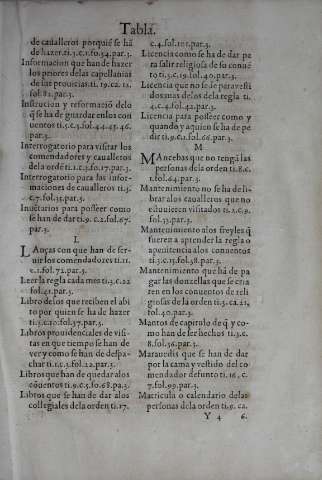 Tabla.
de caualleros porquiē se hā
de hazer.ti.3.c.1.fo.34.par.3.
Informacion que han de hazer
los priores delas capellanias
de las prouicias.ti.19.ca.12.
fol.82.par.3.
Instrucion y reformació delo
q̄ se ha de guardar enlos con
uentos ti.5.c.3.fol.44.45.46.
par.3.
Interrogatorio para visitar los
comendadores y caualleros
dela orden ti.1.c.3.fo.17.par.3.
Interrogatorio para las infor-
maciones de caualleros ti.3.
c.7.fol.35.par.3.
Inuētarios para posseer como
se han de dar ti.9.c.2.fol.67.
par.3.
L
LAnças con que han de ser-
uir los comendadores ti.11.
c.1.fol.72.par.3.
Leer la regla cada mes ti.3.c.22
fol.41.par.3.
Libro de los que reciben el abi
to por quien se ha de hazer
ti.3.c.10.fol.37.par.3.
Libros prouidencales de visi-
tas en que tiempo se han de
ver y como se han de despa-
char ti.1.c.5.fol.22.par.3.
Libros que han de quedar alos
cōuentos ti.9.c.5.fo.68.pa.3.
Libros que se han de dar alos
collegiales dela orden ti.17.
c.4.fol.101.par.3.
Licencia como se ha de dar pa
ra salir religiosa de su conuē
to ti.3.c.19.fol.40.par.3.
Licencia que no se de para vesti
dos mas delos dela regla ti.
4.c.4.fol.42.par.3.
Licencia para posseer como y
quando y aquien se ha de pe
dir ti.9.c.1.fol.66.par.3.
M
MAncebas que no tengā las
personas dela orden ti.8.c.
1.fol.64.par.3.
Mantenimiento no se ha de li-
brar alos caualleros que no
estuuieren visitados ti.2.c.9.
fol.33.par.3.
Mantenimiento alos freyles q̄
fueren a aprender la regla o
a penitencia alos conuentos
ti.3.c.13.fol.38.par.3.
Mantenimiento que hā de pa-
gar las donzellas que se cria
ren en los conuentos de reli
giosas de la orden ti.3.ca.21.
fol.40.par.3.
Mantos de capitulo de q̄ y co-
mo han de ser hechos ti.3.c.
8.fol.36.par.3.
Marauedis que se han de dar
por la cama y vestido del co-
mendador defunto ti.16.c.
7.fol.99.par.3.
Matricula o calendario delas
personas dela orden ti.9.ca.
Y 4 6.